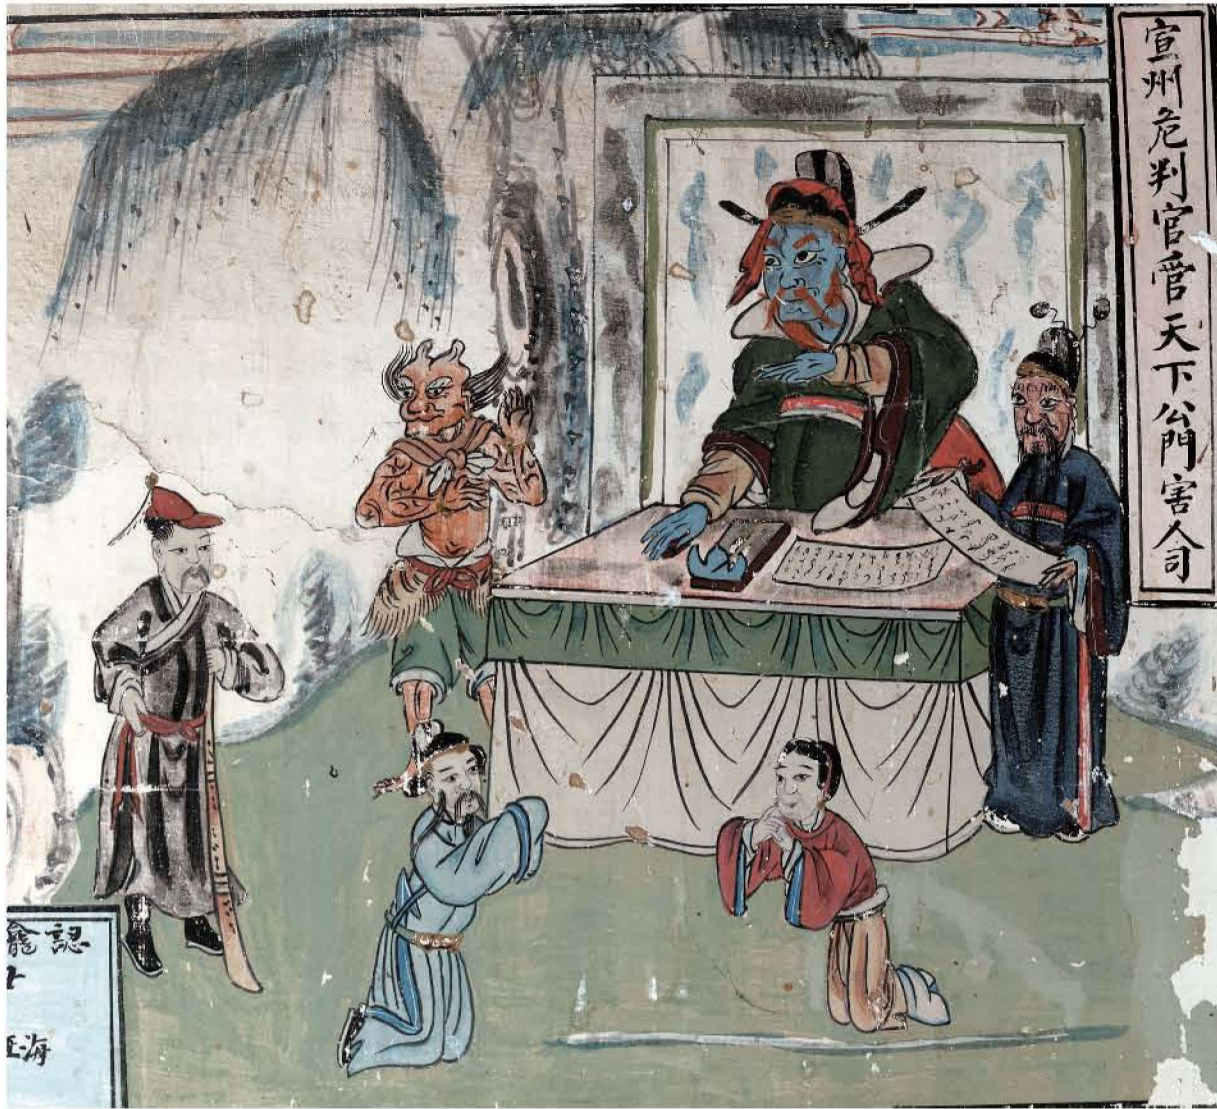 宣州危判官管天下公門害人司
認
龕
海